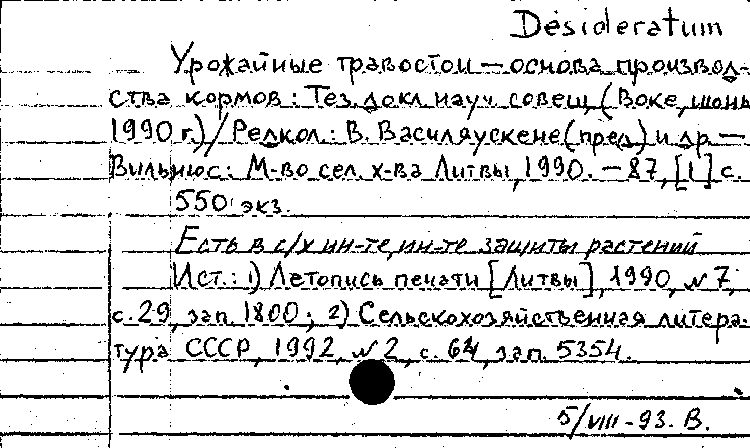 Desideratum
Урожайные травостои — основа производ-
ства кормов: Тез. докл. науч. совещ. (Воке, июнь
1990 г.) / Редкол.: В. Василяускене (пред) и др. —
Вильнюс: М-во сел. х-ва Литвы, 1990. — 87, [1] с.
550 экз.
Есть в с/х ин-те, ин-те защиты растений
Ист.: 1) Летопись печати [Литвы], 1990, № 7,
с. 29, зап. 1800; 2) Сельскохозяйственная литера-
тура СССР, 1992, № 2, с. 64, зап. 5354.
5/VIII-93. В.